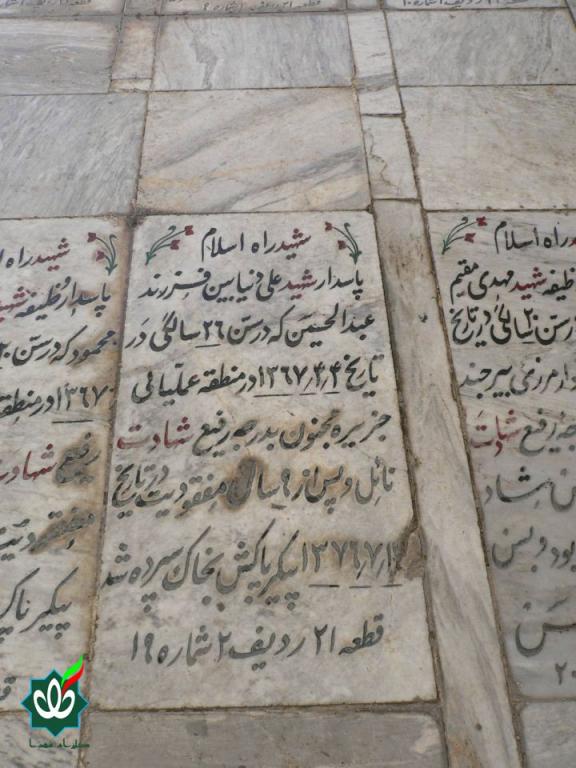 شهید راه اسلام
پاسدار شهید علی دنیابین فرزند
عبدالحسین که در سن ۲۶ سالگی در
تاریخ ۱۳۶۷٫۴٫۴ در منطقه عملیاتی
جزیره مجنون بدرجه رفیع شهادت
نائل و پس از ۹ سال مفقودیت در تاریخ
پیکر پاکش بخاک سپرده شد
قطعه ۲۱ ردیف ۲ شماره ۱۹
شهید راه
پاسدار وظیفه شهید
محمود که در سن ۲۰
۱۳۶۷ در منطقه
رفیع شهادت
مفقودیت
پیکر پاک
راه اسلام
وظیفه شهید مهدی مقیم
سن ۲۰ سالگی در تاریخ
مرزی بیرجند
رفیع شهادت
بود و پس